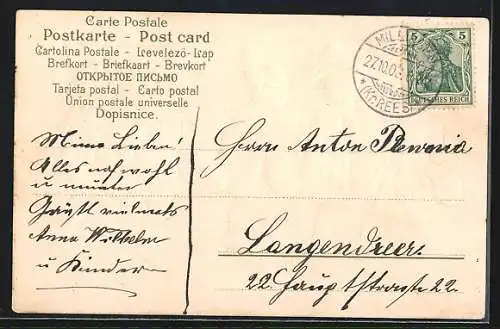 Carte Postale
Postkarte - Post card
Cartolina Postale - Levelező-Lap
Brefkort - Briefkaart - Brevkort
ОТКРЫТОЕ ПИСЬМО
Tarjeta postal - Carto postal
Union postale universelle
Dopisnice.
5 5
DEUTSCHES REICH
27.10.05
(KR. REES)
Meine Lieben!
Alles noch wohl
u munter
Grüßt vielmals
Anna Wilhelm
u Kinder
Herrn Anton
Langendreer.
22 Hauptstrasse 22.